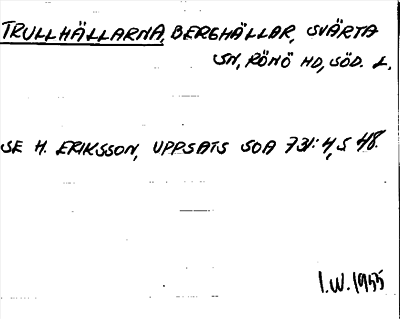 TRULLHÄLLARNA, BERGHÄLLAR, SVÄRTA
SN, RÖNÖ HD, SÖD. L.
SE H. ERIKSSON, UPPSATS SOA 731:4, S 48.
I.W. 1955